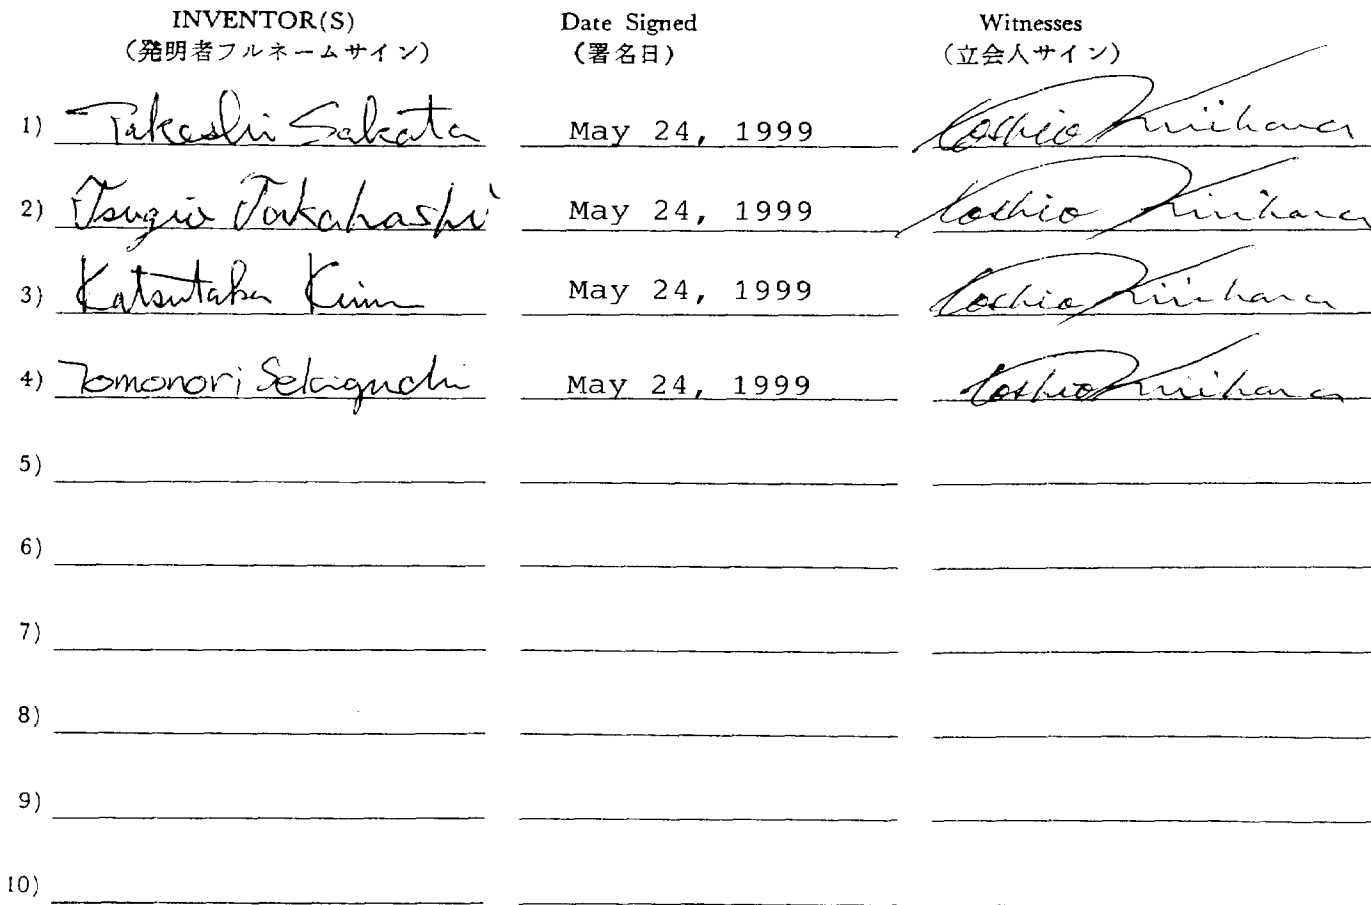 INVENTOR(S) Date Signed Witnesses
(発明者フルネームサイン) (署名日) (立会人サイン)
1) Takeshi Sakata May 24, 1999 Toshio Kirihara
2) Tsugio Takahashi May 24, 1999 Toshio Kirihara
3) Katsutaka Kimura May 24, 1999 Toshio Kirihara
4) Tomonori Sekiguchi May 24, 1999 Toshio Kirihara
5)
6)
7)
8)
9)
10)